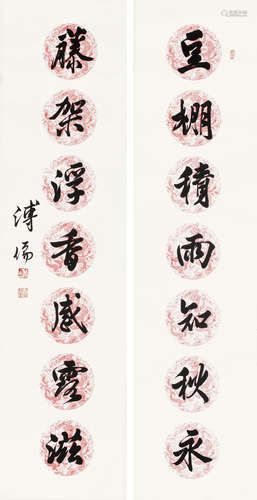 豆棚積雨知秋永
藤架浮香感露滋
溥儒